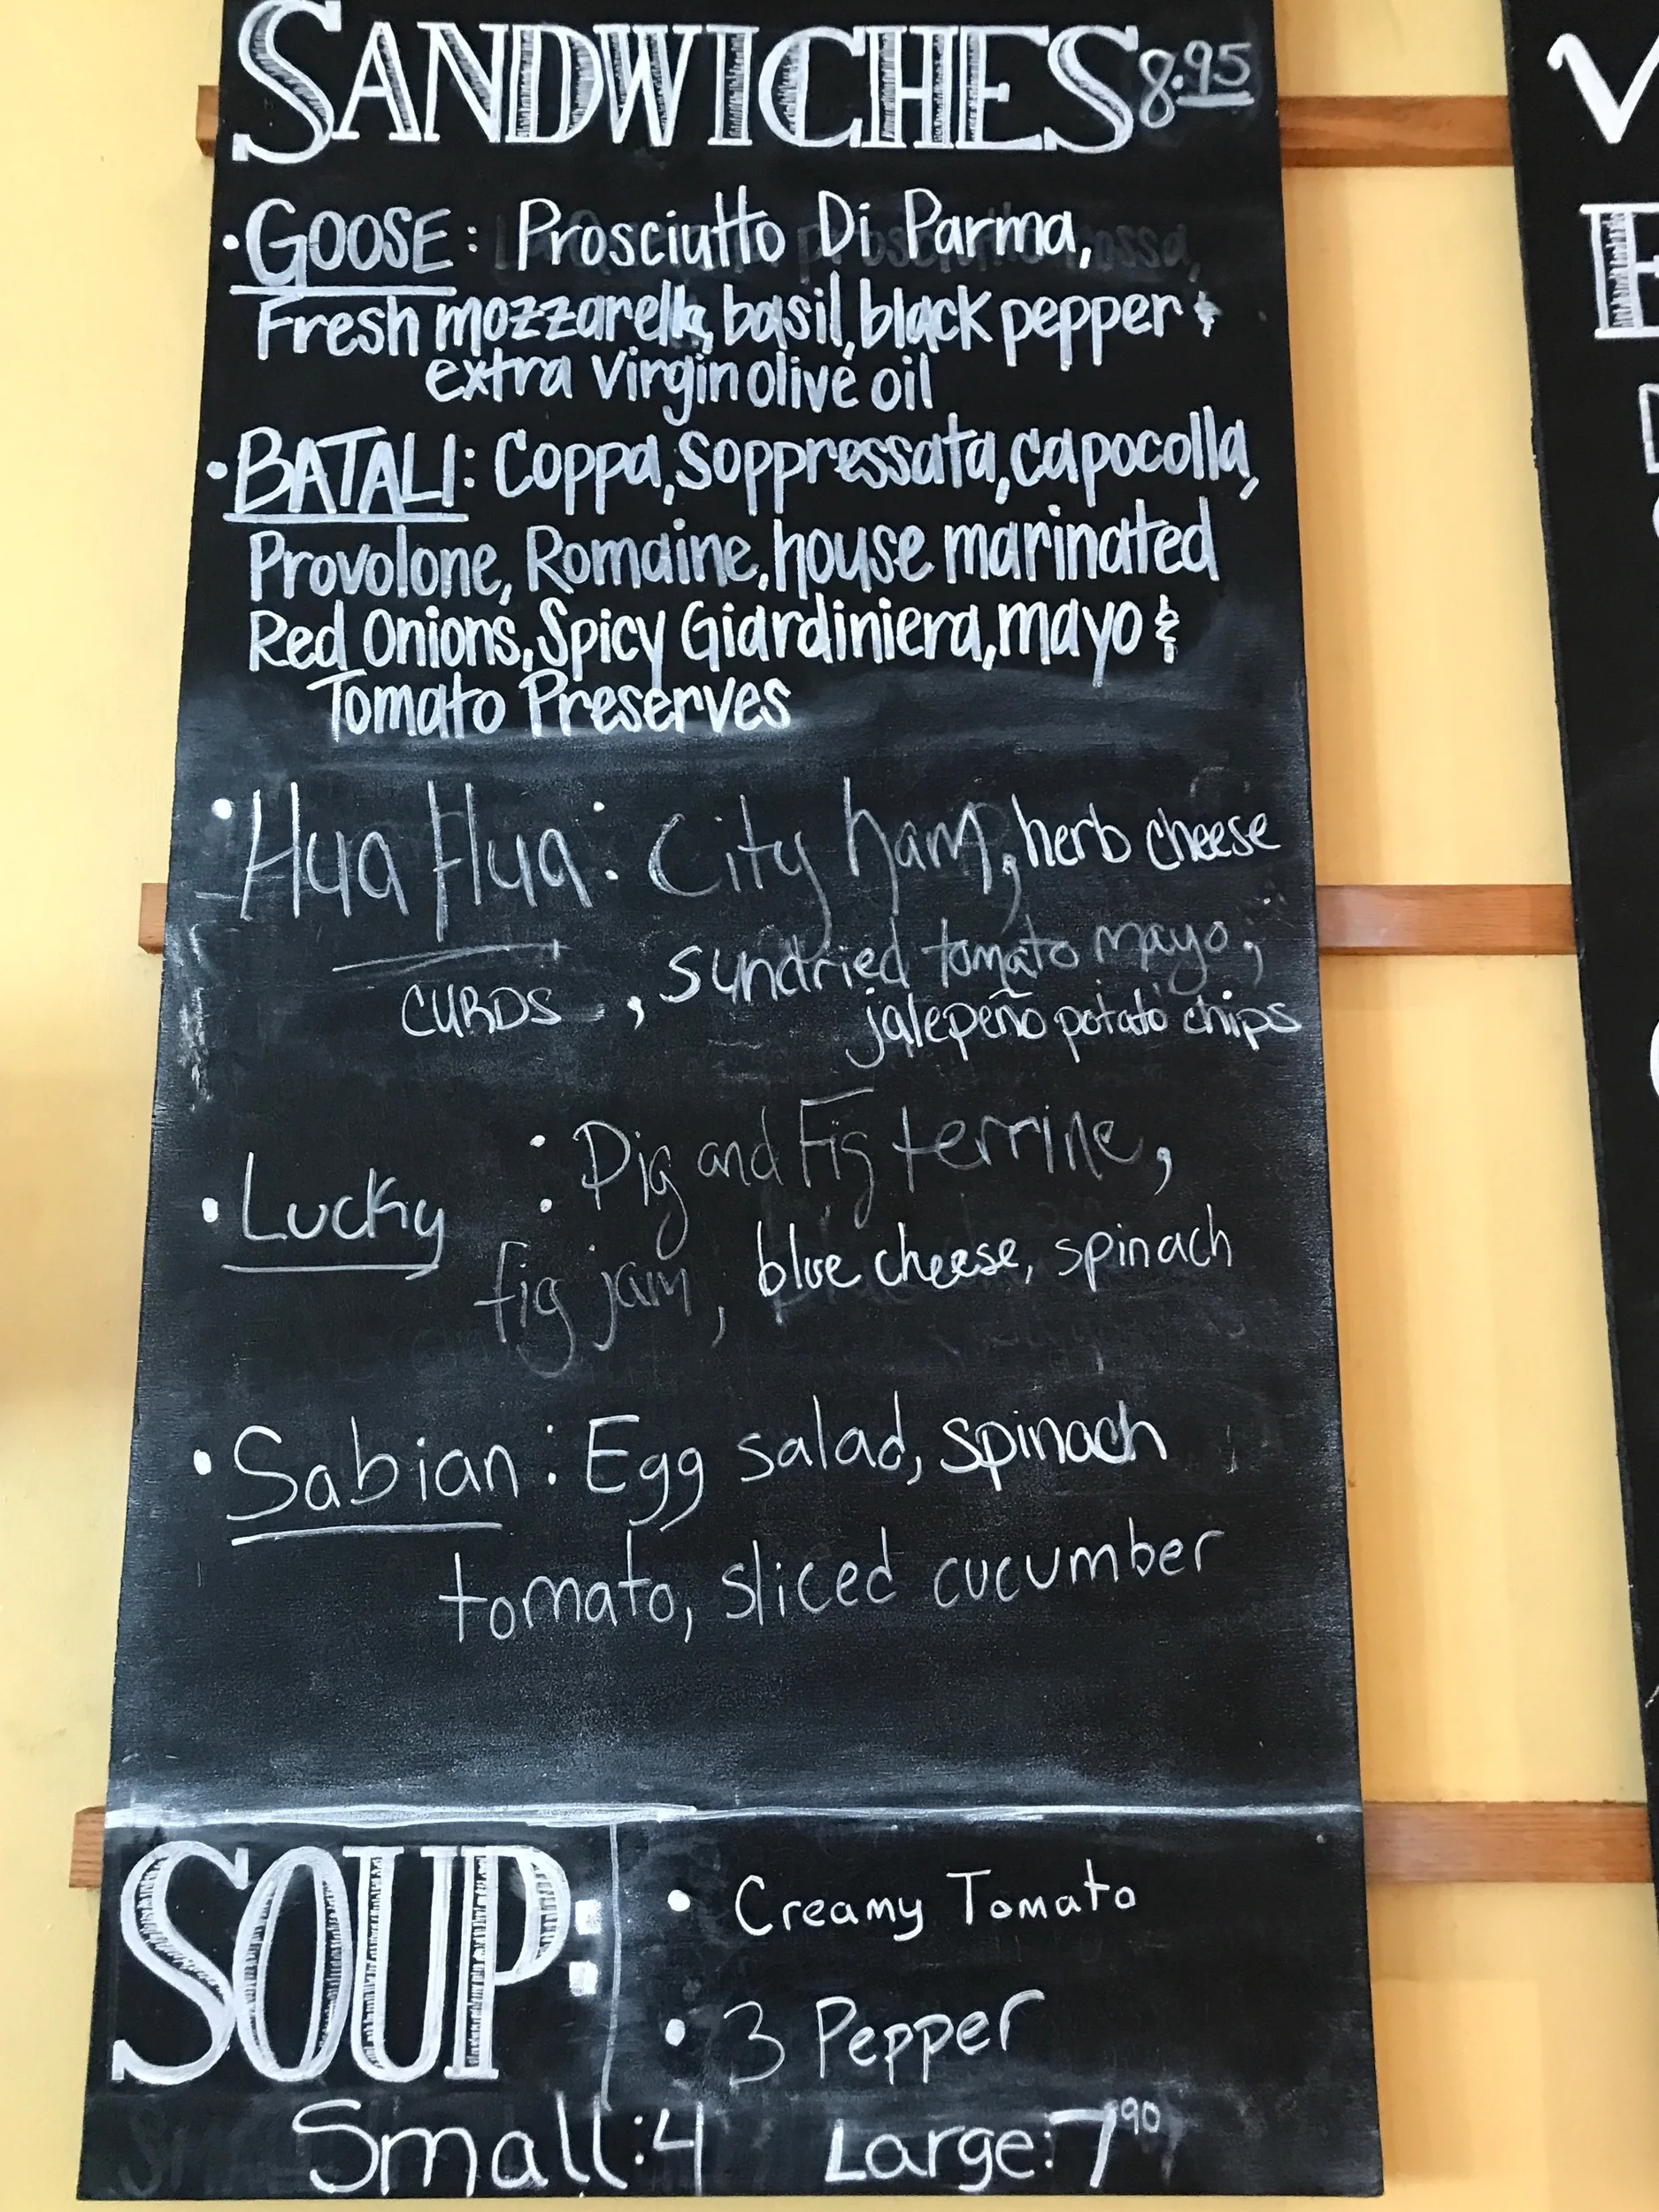 SANDWICHES 8.95
• GOOSE: Prosciutto Di Parma,
Fresh mozzarella, basil, black pepper &
extra Virgin olive oil
• BATALI: Coppa, Soppressata, capocolla,
Provolone, Romaine, house marinated
Red Onions, Spicy Giardiniera, mayo &
Tomato Preserves
• Hya Hya: City ham, herb cheese
CURDS, sundried tomato mayo,
jalepeño potato chips
• Lucky : Pig and Fig terrine,
fig jam, blue cheese, spinach
• Sabian: Egg salad, spinach
tomato, sliced cucumber
SOUP:
• Creamy Tomato
• 3 Pepper
Small: 4 Large: 7 90